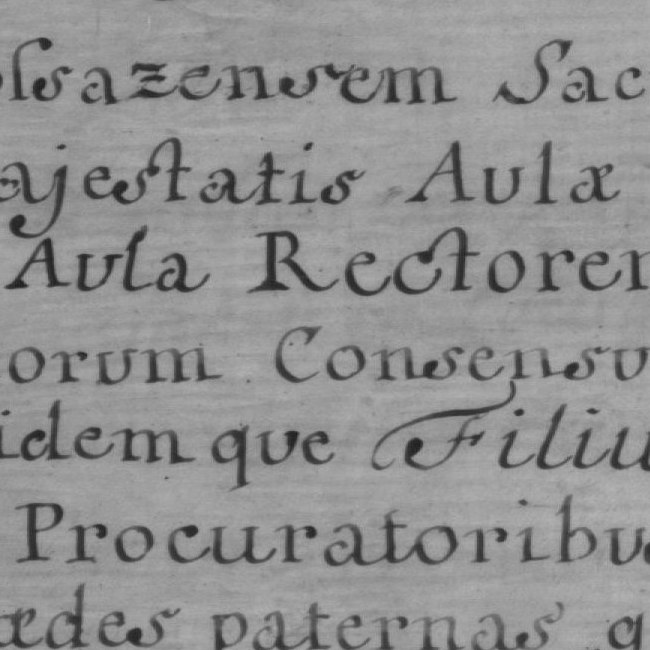 olsazensem Sac
ajestatis Aulæ
Aula Rectorem
orum Consensu
idemque Filiu
Procuratoribus
ædes paternas q